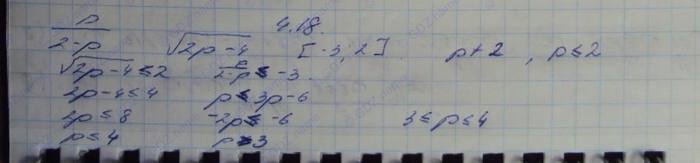 4.18.
p/(2-p) √(2p-4) [-3; 2] p≠2, p≤2
√(2p-4) ≤ 2 p/(2-p) ≤ -3.
2p-4≤4 p≤3p-6
2p≤8 -2p≤-6 3≤p≤4
p≤4 p≥3